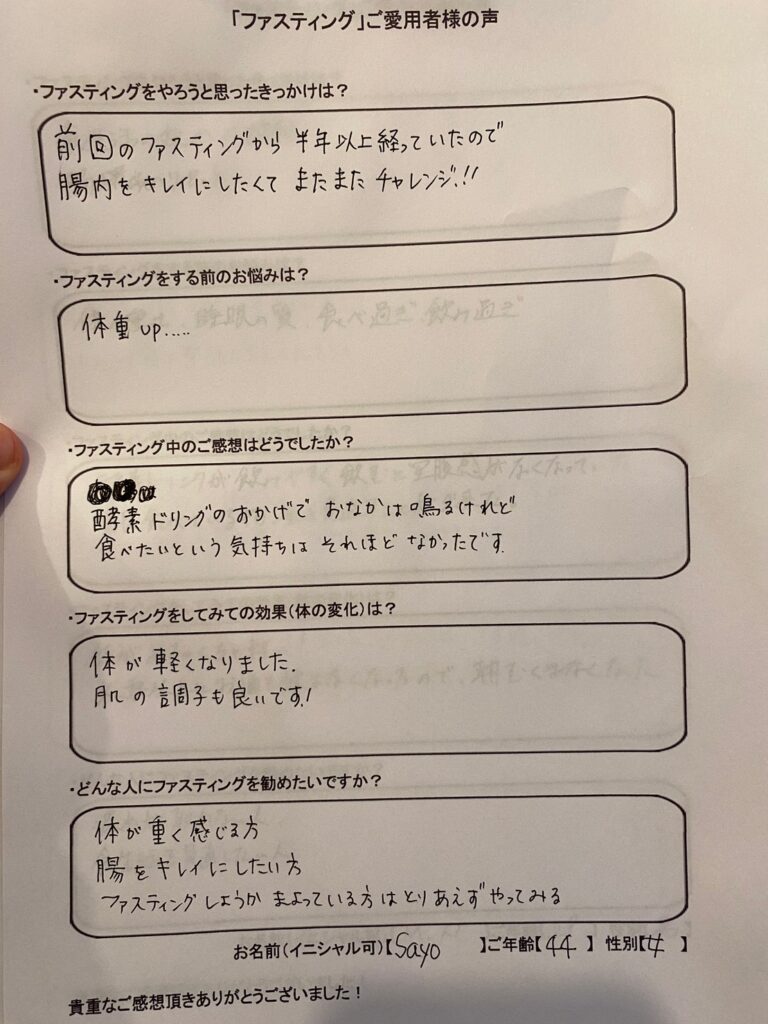 「ファスティング」ご愛用者様の声
・ファスティングをやろうと思ったきっかけは？
前回のファスティングから 半年以上経っていたので
腸内を キレイにしたくて またまた チャレンジ!!
・ファスティングをする前のお悩みは？
体重up.....
・ファスティング中のご感想はどうでしたか？
酵素ドリングのおかげで おなかは鳴るけれど
食べたいという気持ちは それほど なかったです.
・ファスティングをしてみての効果（体の変化）は？
体が 軽くなりました.
肌の調子も良いです!
・どんな人にファスティングを勧めたいですか？
体が重く感じる方
腸をキレイにしたい方
ファスティングしようか まよっている方はとりあえずやってみる
お名前（イニシャル可）【Sayo 】ご年齢【44 】 性別【女 】
貴重なご感想頂きありがとうございました！